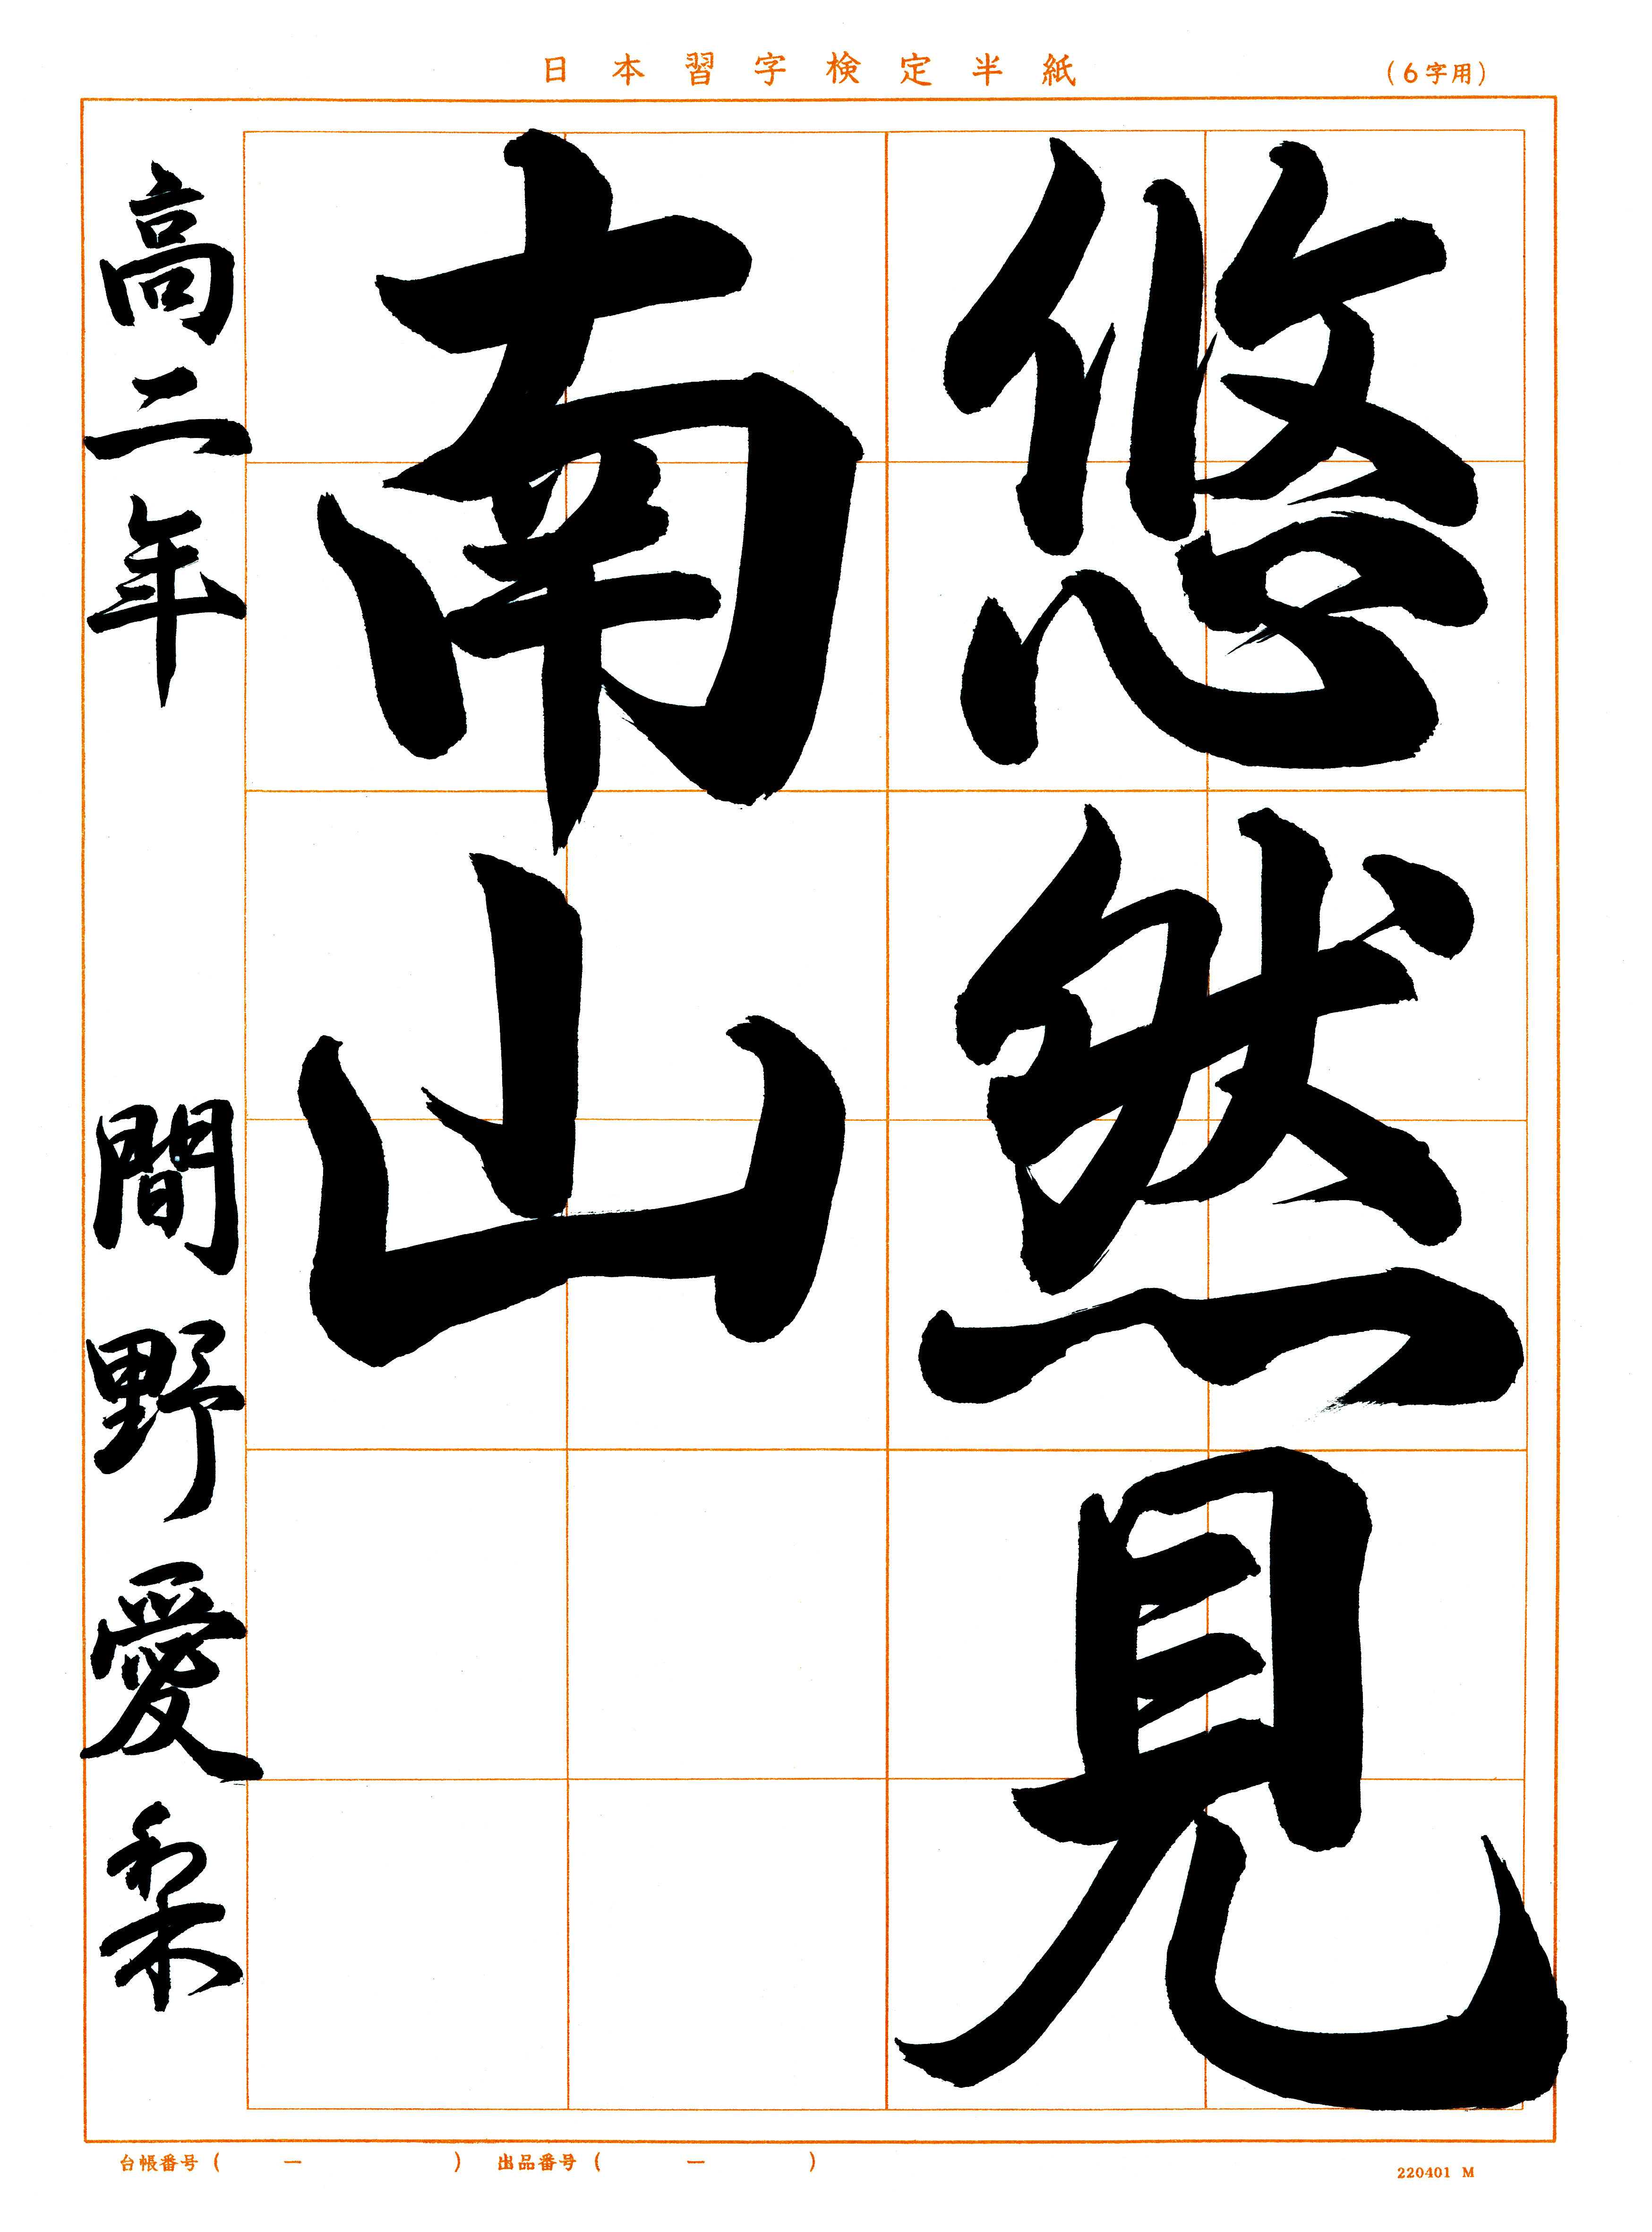 日本習字検定半紙
(6字用)
悠然見
南山
高二年 間野愛梨
台帳番号 ( ー ) 出品番号 ( ー )
220401 M